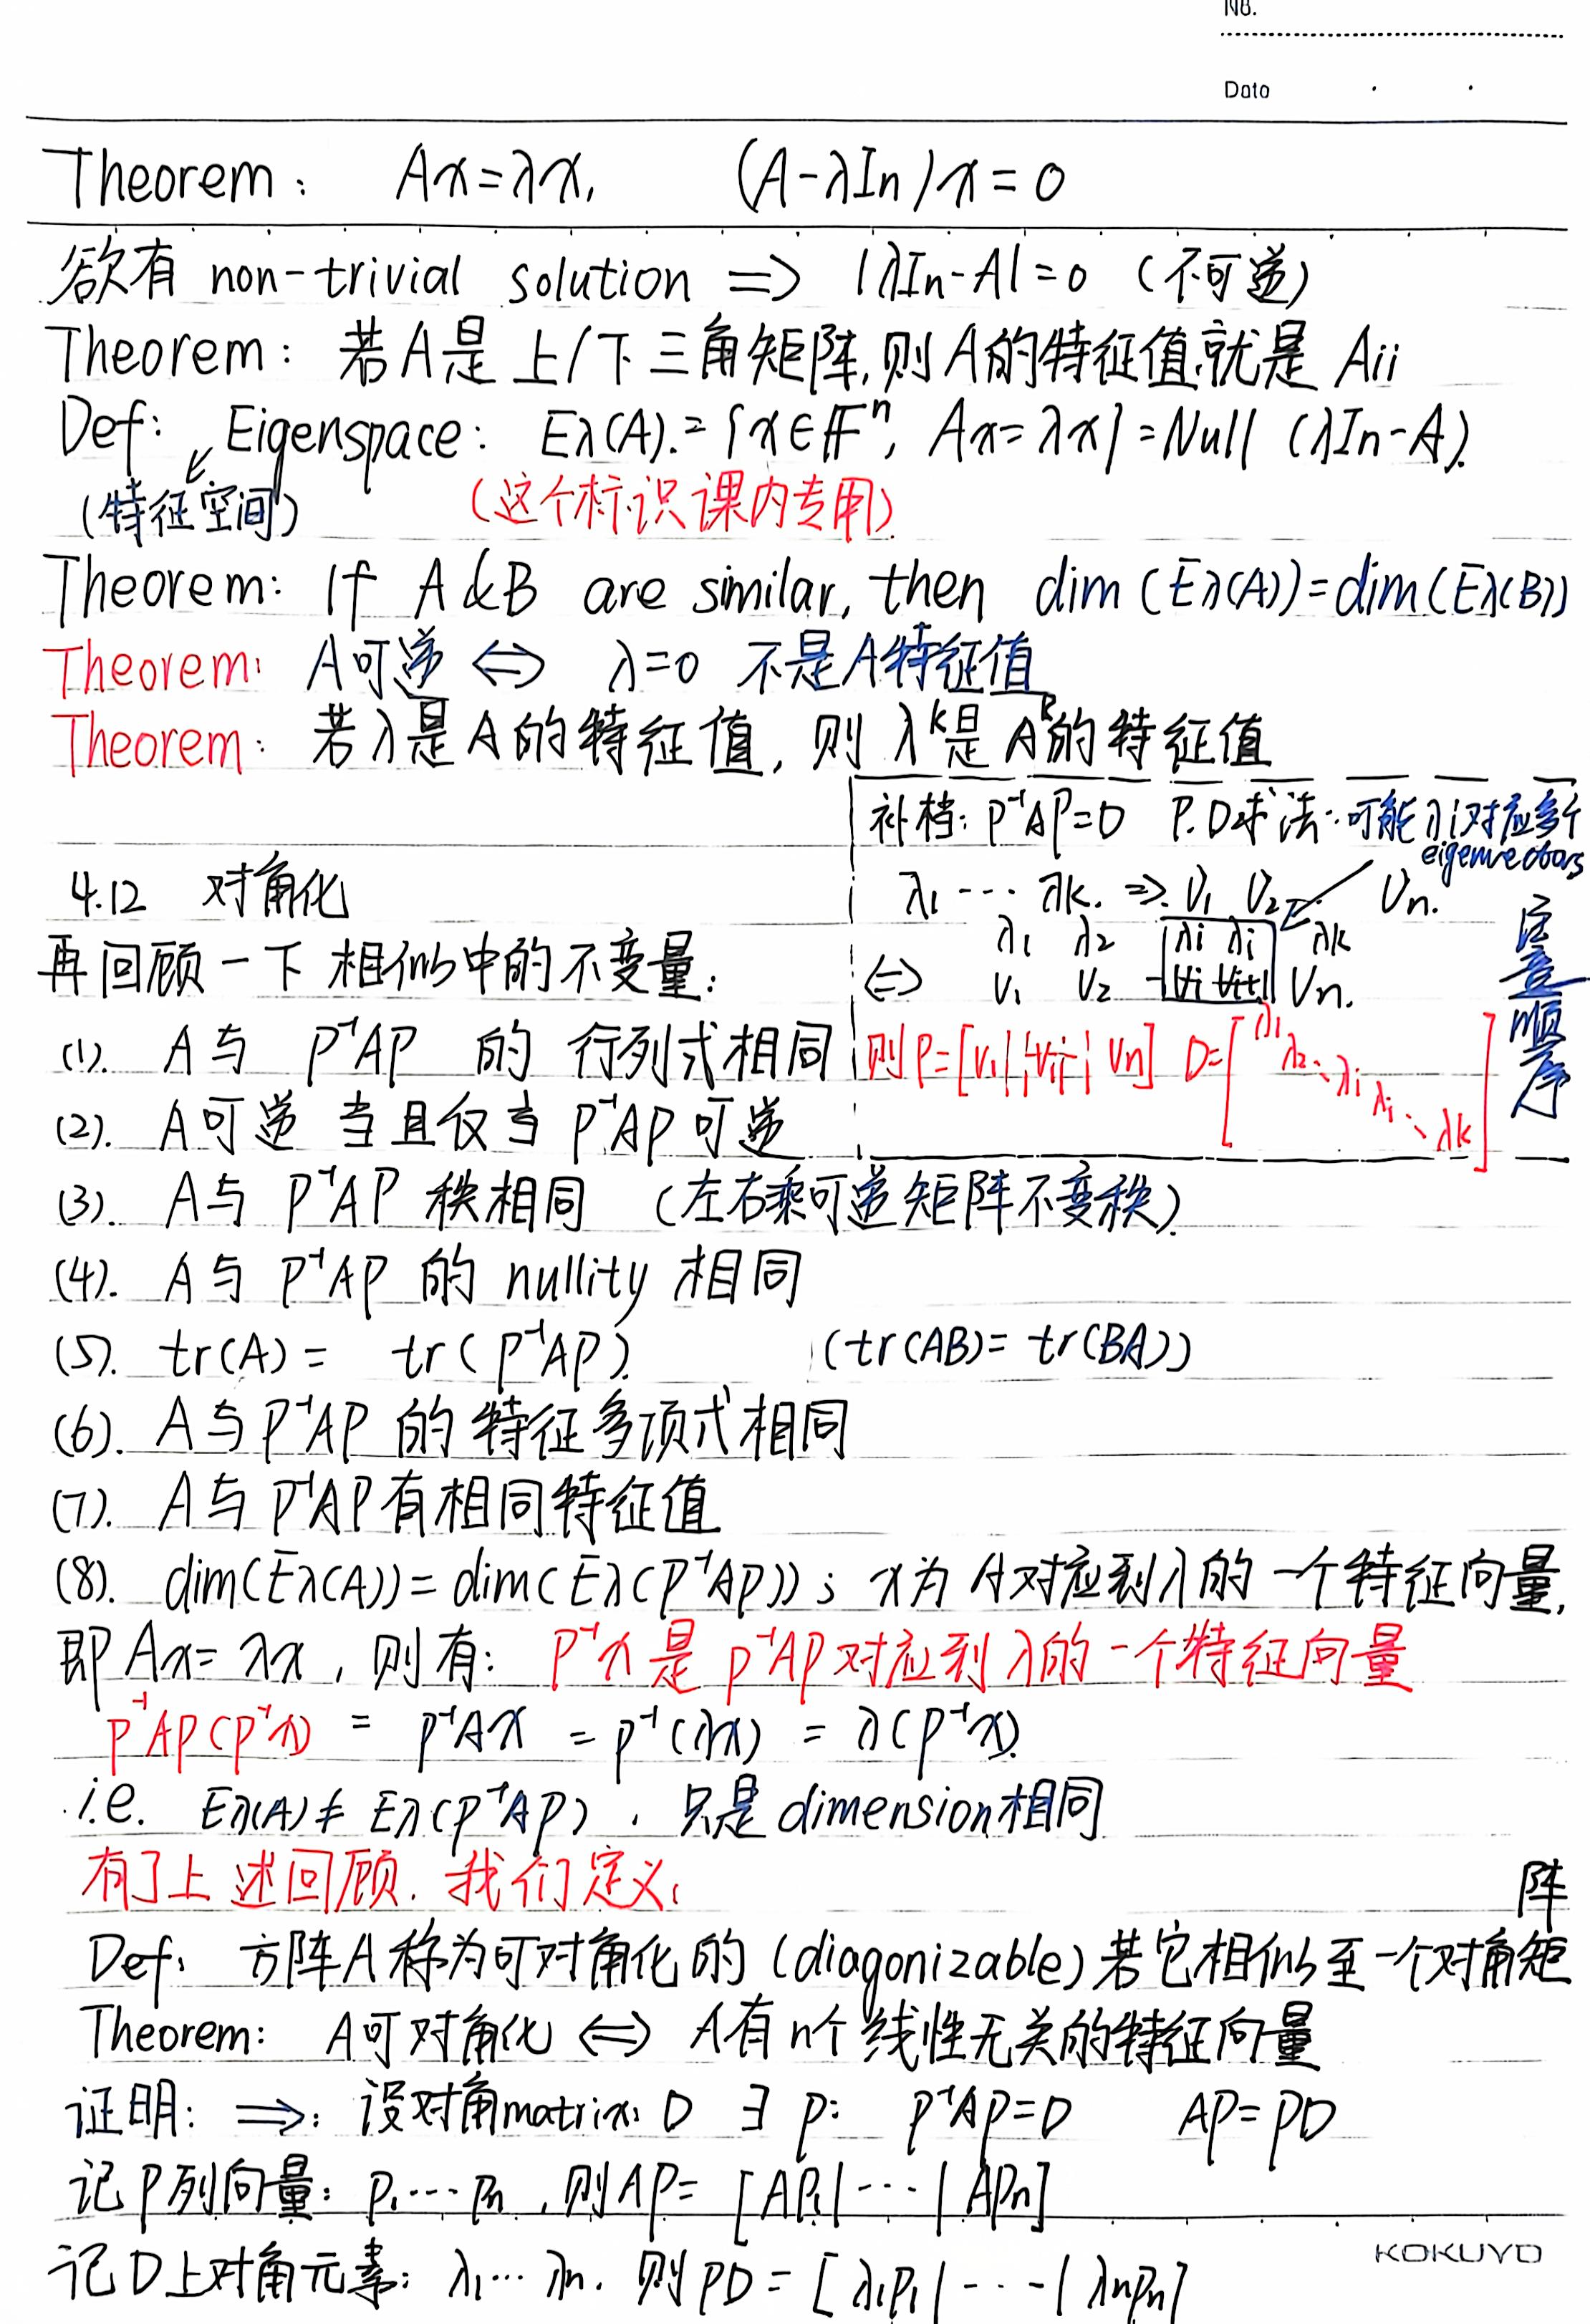 No.
Date
Theorem: Ax=λx, (A-λIn)x=0
欲有 non-trivial solution ⇒ |λIn-A|=0 (不可逆)
Theorem: 若A是上/下三角矩阵,则A的特征值就是 Aii
Def: Eigenspace: Eλ(A).={x∈Fⁿ, Ax=λx}=Null (λIn-A).
(特征空间) (这个标识课内专用)
Theorem: If A&B are similar, then dim(Eλ(A))=dim(Eλ(B))
Theorem: A可逆 ⇔ λ=0 不是A特征值
Theorem: 若λ是A的特征值, 则λᵏ是Aᵏ的特征值
补档: P⁻¹AP=D P.D求法:可能λi对应多个
eigenvectors
λ1 ··· λk. ⇒ V1 V2 Vn.
λ1 λ2 λi λi λk
⇔ V1 V2 Vi Vi+1 Vn.
则P=[V1|¦Vi¦|Vn] D=[λ1 λ2 ⋱ λi λi ⋱ λk]
注意顺序
4.12 对角化
再回顾一下相似中的不变量:
(1). A与 P⁻¹AP 的 行列式相同
(2). A可逆 当且仅当 P⁻¹AP 可逆
(3). A与 P⁻¹AP 秩相同 (左右乘可逆矩阵不变秩)
(4). A与 P⁻¹AP 的 nullity 相同
(5). tr(A)= tr(P⁻¹AP). (tr(AB)=tr(BA))
(6). A与P⁻¹AP 的特征多项式相同
(7). A与P⁻¹AP有相同特征值
(8). dim(Eλ(A))=dim(Eλ(P⁻¹AP)); x为A对应到λ的一个特征向量,
即Ax=λx, 则有: P⁻¹x是P⁻¹AP对应到λ的一个特征向量
P⁻¹AP(P⁻¹x) = P⁻¹Ax = P⁻¹(λx) = λ(P⁻¹x).
i.e. Eλ(A)≠Eλ(P⁻¹AP). 只是dimension相同
有了上述回顾. 我们定义:
Def: 方阵A称为可对角化的(diagonizable)若它相似至一个对角矩
阵
Theorem: A可对角化 ⇔ A有n个线性无关的特征向量
证明: ⇒: 设对角matrix: D ∃ P: P⁻¹AP=D AP=PD
记P列向量: P1···Pn, 则AP= [AP1|···|APn]
记D上对角元素: λ1···λn. 则PD=[λ1P1|----|λnPn]
KOKUYO